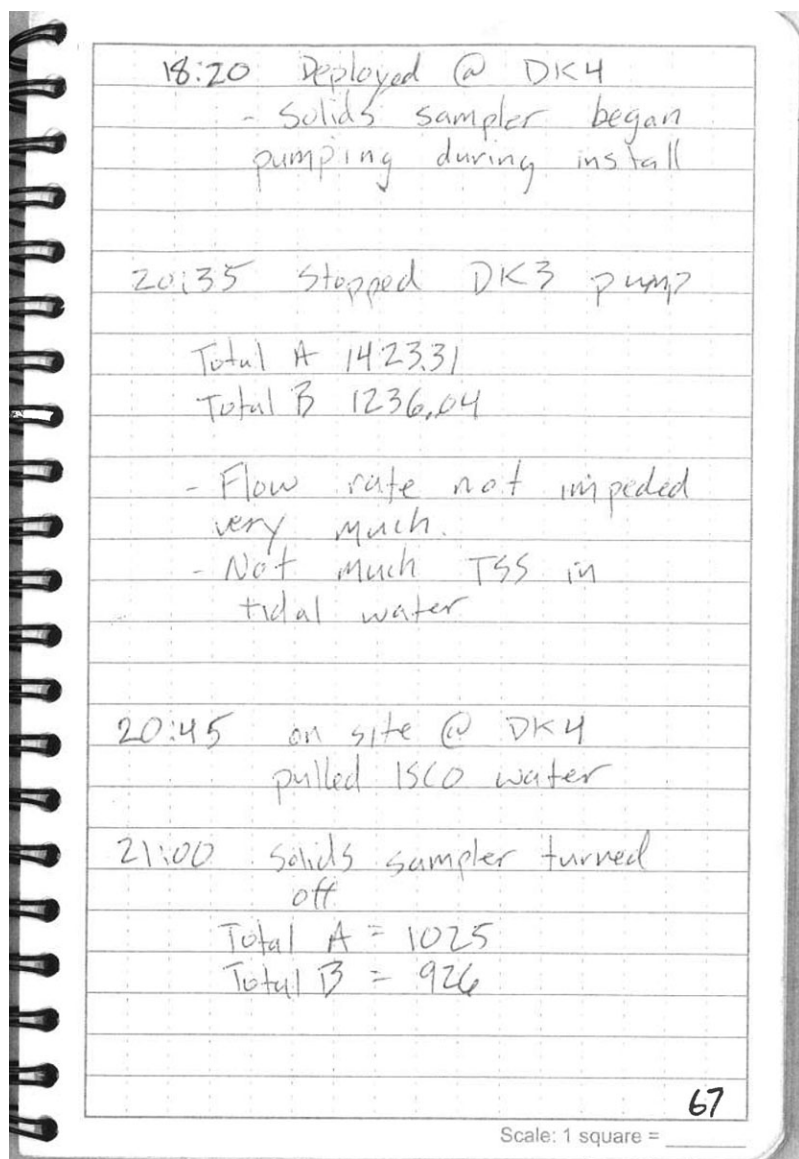 18:20 Deployed @ DK4
- Solids sampler began
pumping during install
20:35 Stopped DK3 pump
Total A 1423.31
Total B 1236.04
- Flow rate not impeded
very much.
- Not much TSS in
tidal water
20:45 on site @ DK4
pulled ISCO water
21:00 Solids sampler turned
off
Total A = 1025
Total B = 926
67
Scale: 1 square =